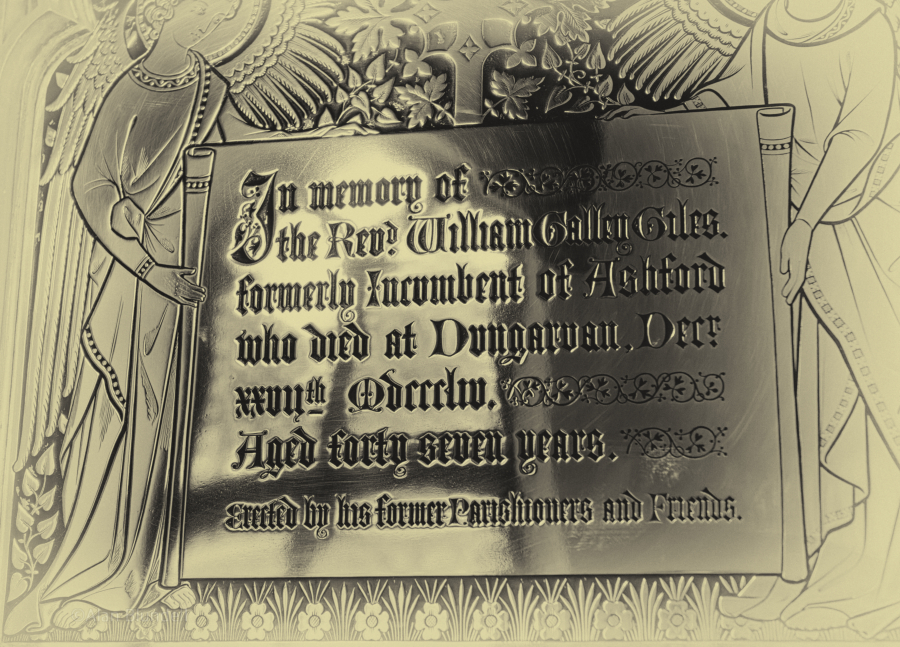 In memory of
the Revd. William Galley Giles.
formerly Incumbent of Ashford
who died at Dungarvan, Decr
xxvijth Mdccclv.
Aged forty seven years.
Erected by his former Parishioners and Friends.